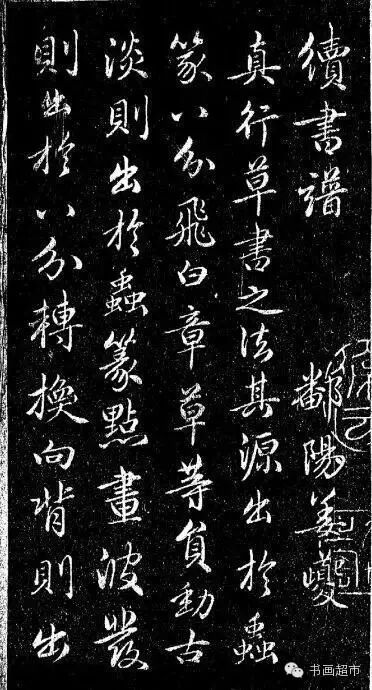 續書譜 鄱陽姜夔
真行草書之法其源出於蟲
篆八分飛白章草等員勁古
淡則出於蟲篆點畫波發
則出於八分轉換向背則出
书画超市